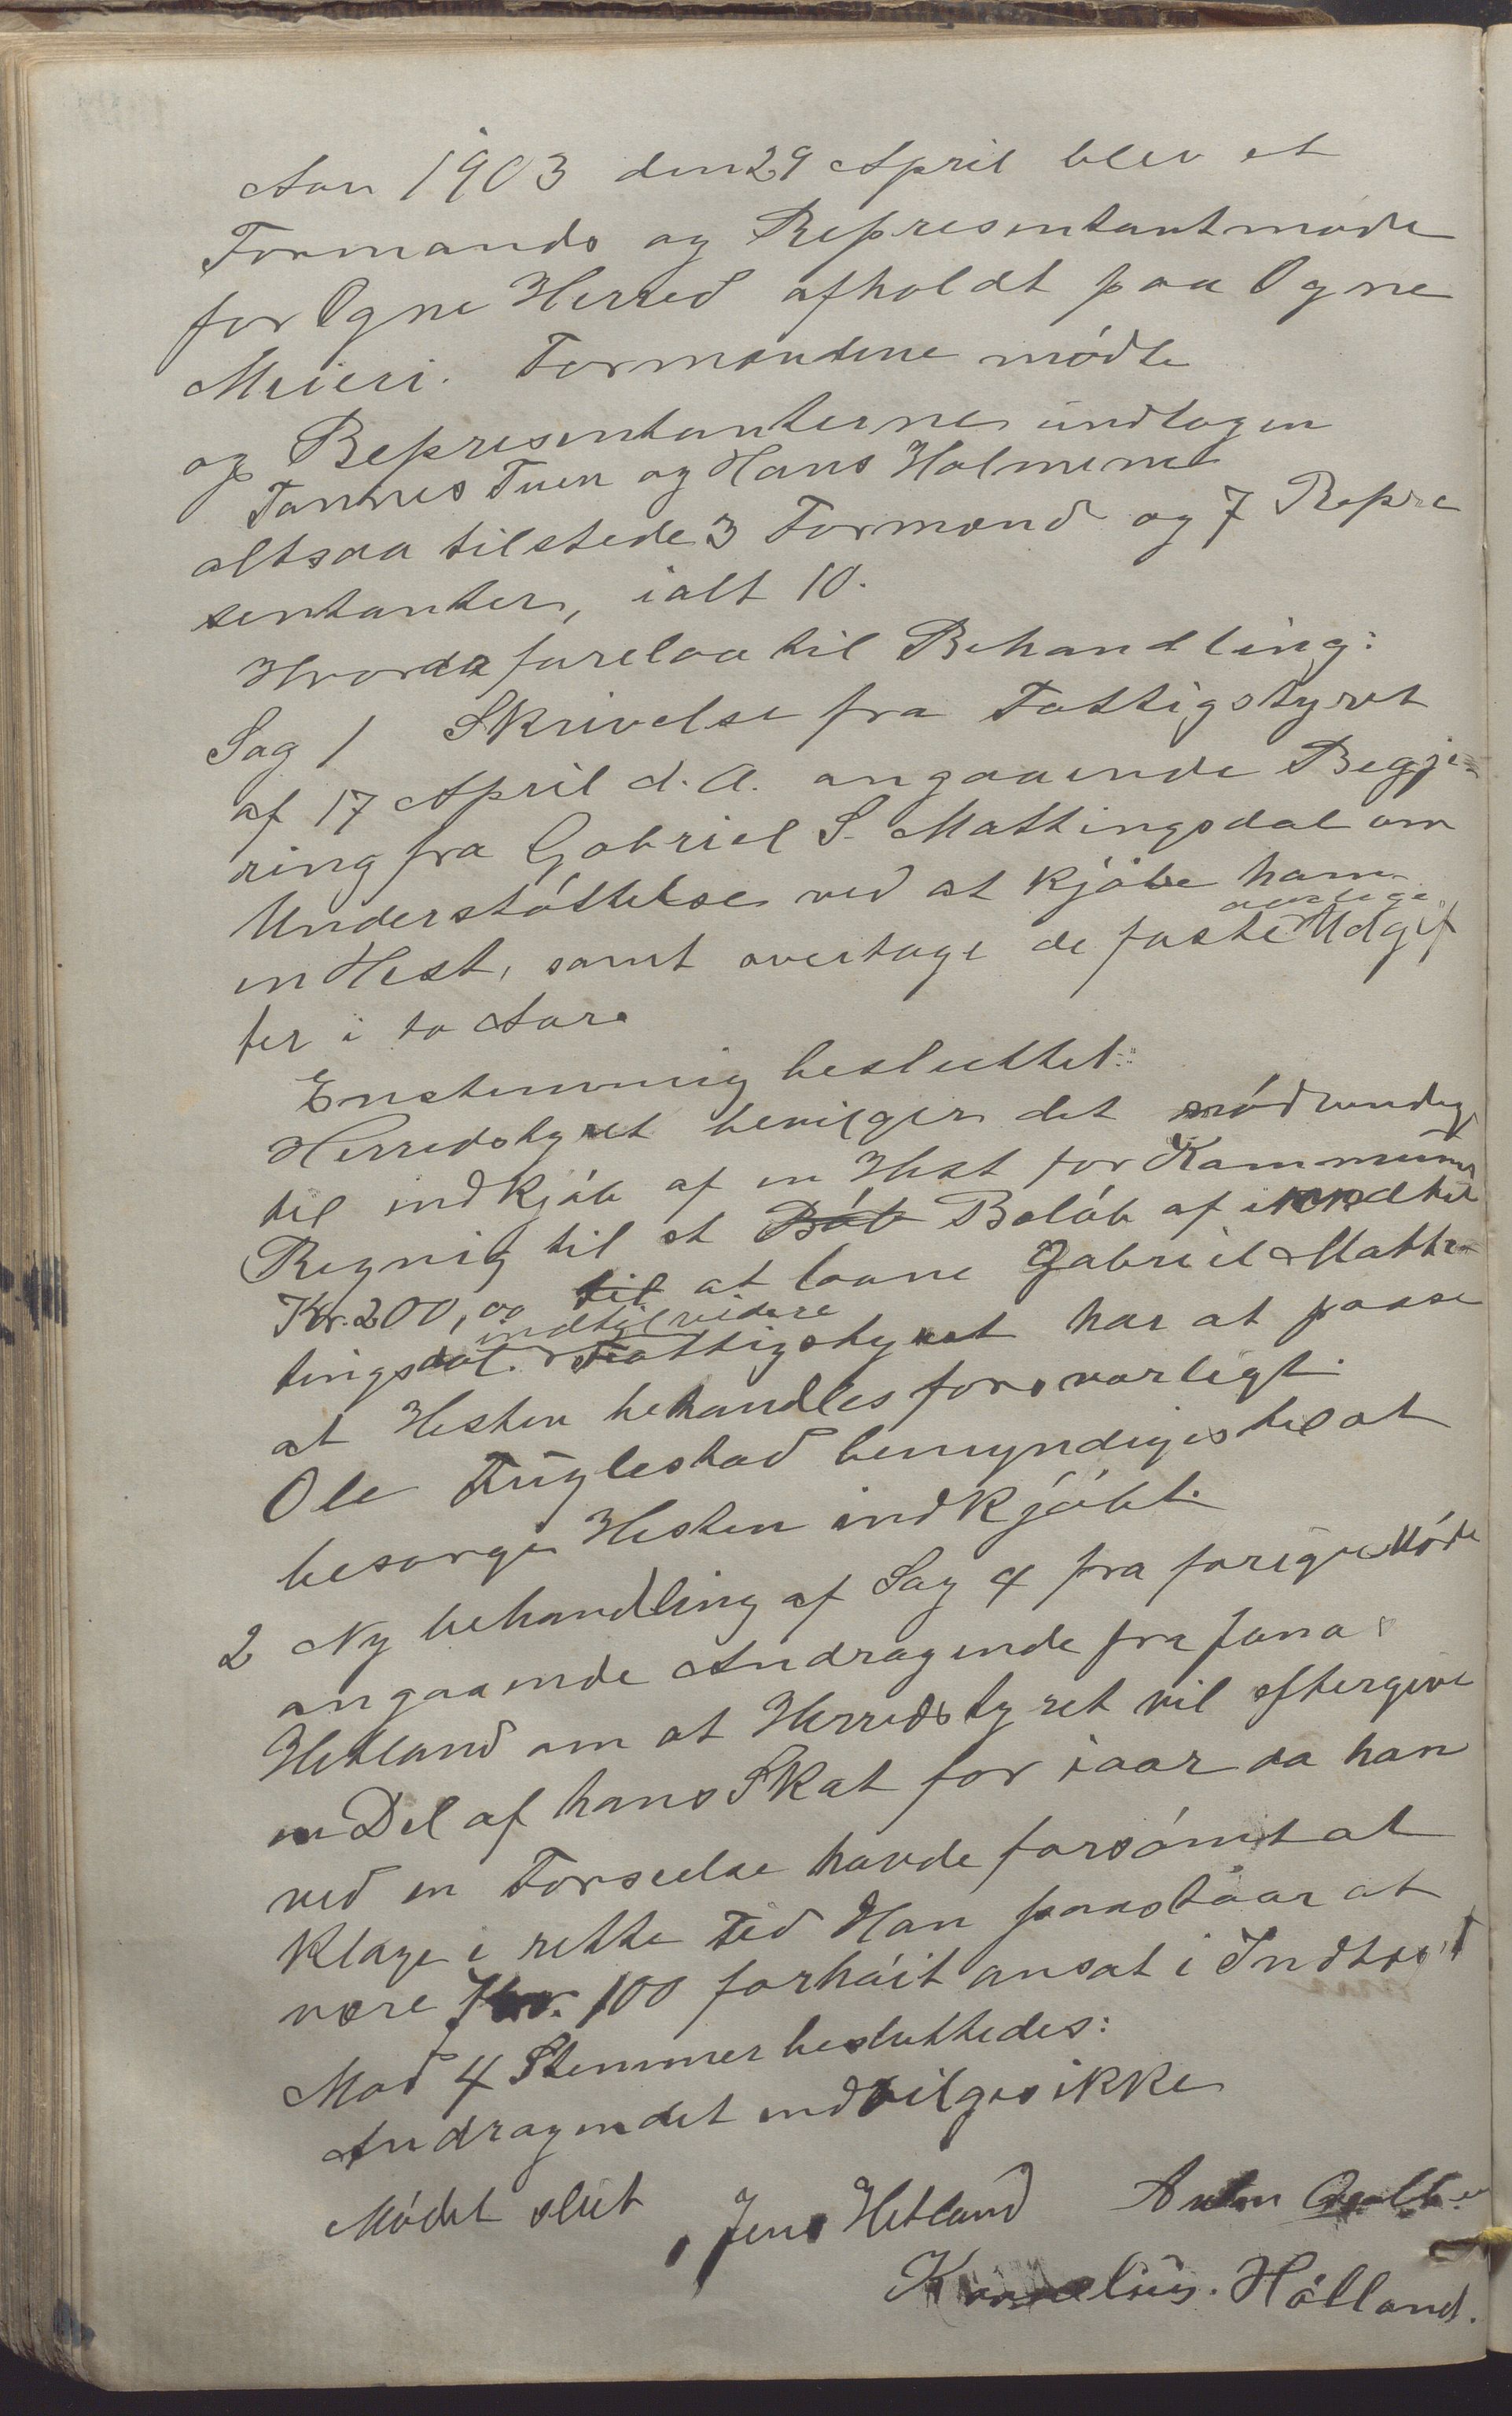 Aar 1903 den 29 April blev et
Formands og Representantmøde
for Ogne Herred afholdt paa Ogne
Meieri. Formændene mødte
og Representanterne undtagen
Tønnes Tuen og Hans Holmene
altsaa tilstede 3 Formænd og 7 Repre
sentanter, ialt 10.
Hvorda forelaa til Behandling:
Sag 1 Skrivelse fra Fattigstyret
af 17 April d. A. angaaende Begjæ-
ring fra Gabriel S. Mattingsdal om
Understøttelse ved at kjøbe ham
en Hest, samt overtage de faste Udgif
ter i to Aar
Enstemmig besluttet:
Herredstyret bevilger det nødvendig
til indkjøb af en Hest for Kommunens
Regnig til et Beløb af indtil
Kr. 200,00 at laane Gabriel Matt-
indtil videre
tingsdal. Fattigstyret har at passe
at Hesten behandles forsvarligt.
Ole Fuglestad bemyndiges til at
besørge Hesten indkjøbt.
2 Ny behandling af Sag 4 fra forige Møde
angaaende Andragende fra Jonas
Hetland om at Herredstyret vil eftergive
en Del af hans Skat for iaar da han
ved en Forseelse havde forsømt at
klage i rette Tid Han paastaar at
være Kr. 100 forhøit ansat i Indtægt
Mod 4 Stemmer besluttedes:
Andragendet indvilges ikke
Mødet slut
Jens Hetland
Kornelius. Hølland.